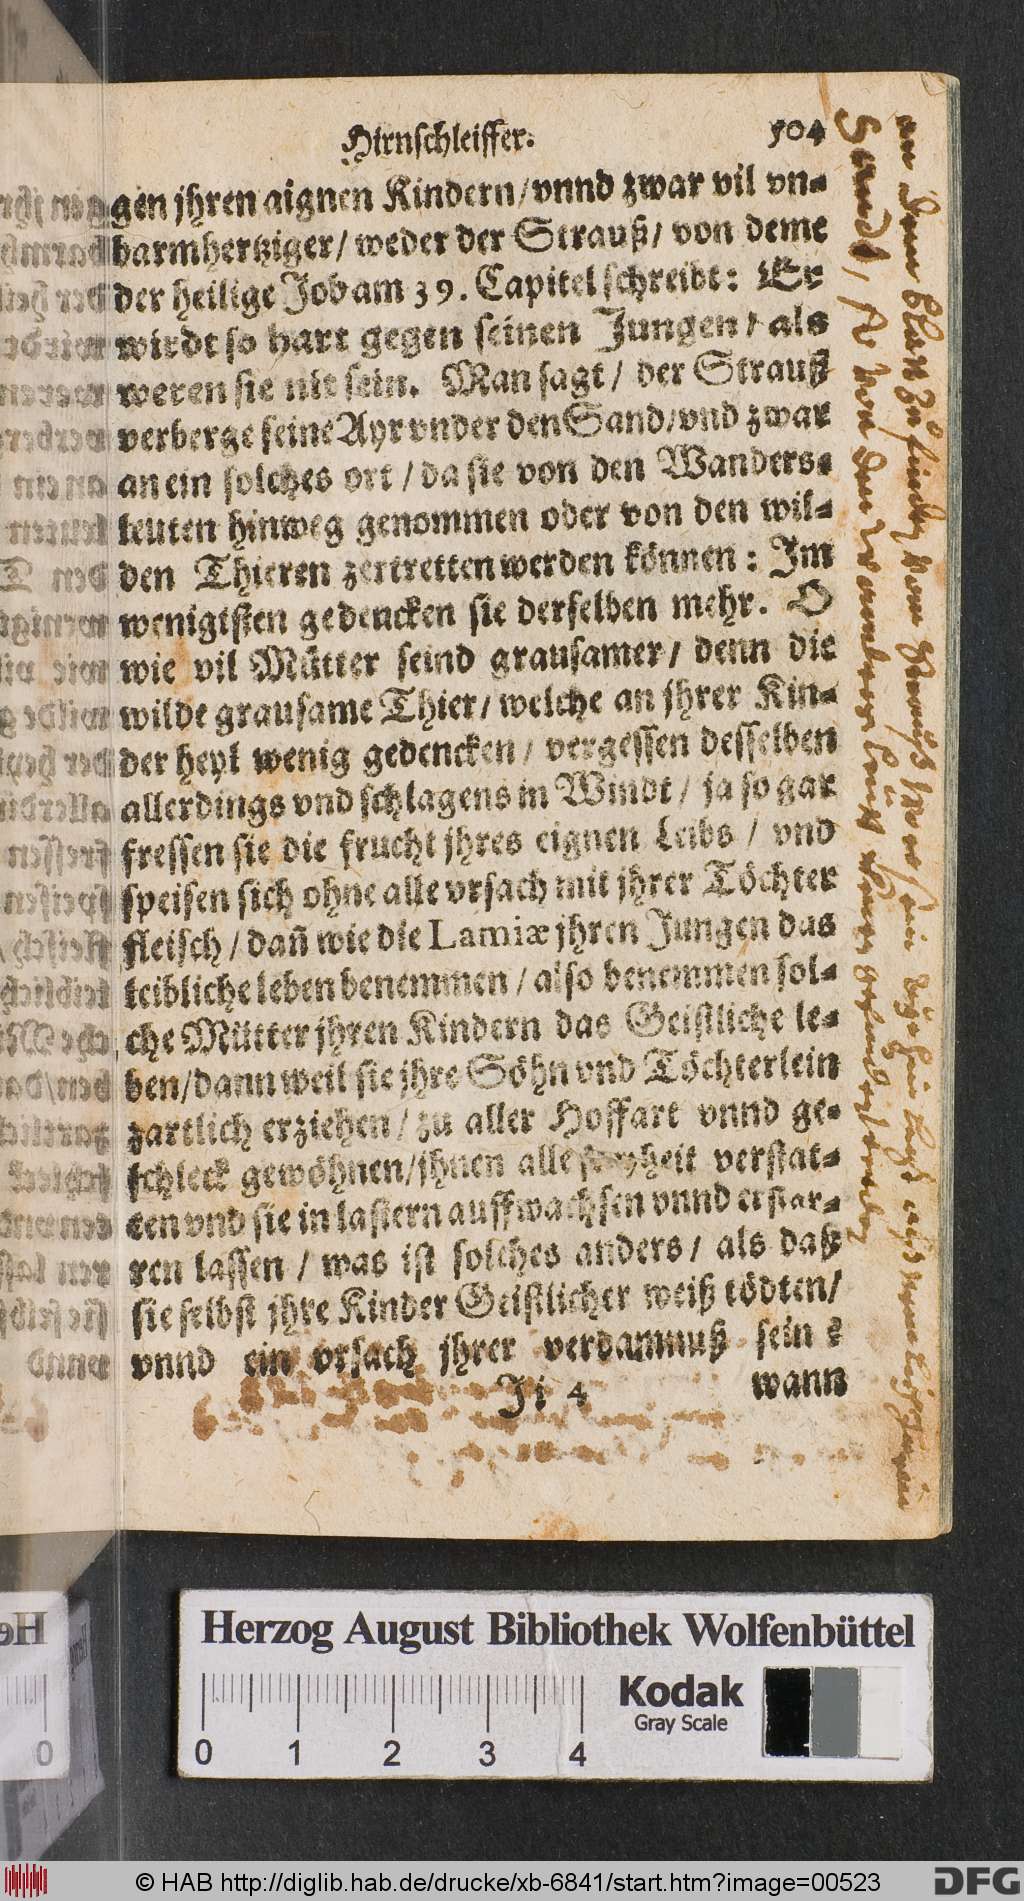 Hirnschleiffer. 504
gen jhren aignen Kindern/vnnd zwar vil vn-
barmhertziger/ weder der Strauß/ von deme
der heilige Job am 39. Capitel schreibt: Er
wirdt so hart gegen seinen Jungen/ als
weren sie nit sein. Man sagt/ der Strauß
verberge seine Ayr vnder den Sand/vnd zwar
an ein solches ort/ da sie von den Wanders-
leuten hinweg genommen oder von den wil-
den Thieren zertretten werden können: Im
wenigisten gedencken sie derselben mehr. O
wie vil Mütter seind grausamer/ denn die
wilde grausame Thier/ welche an jhrer Kin-
der heyl wenig gedencken/ vergessen desselben
allerdings vnd schlagens in Windt/ ja so gar
fressen sie die frucht jhres eignen Leibs/ vnd
speisen sich ohne alle vrsach mit jhrer Töchter
fleisch/ dañ wie die Lamiæ jhren Jungen das
leibliche leben benemmen/ also benemmen sol-
che Mütter jhren Kindern das Geistliche le-
ben/dann weil sie jhre Söhn vnd Töchterlein
zartlich erziehen/ zu aller Hoffart vnnd ge-
schleck gewöhnen/jhnen alle freyheit verstat-
ten vnd sie in lastern auffwachsen vnnd erstar-
ren lassen/ was ist solches anders/ als daß
sie selbst jhre Kinder Geistlicher weiß tödten/
vnnd ein vrsach jhrer verdamnuß sein?
Ji 4 wann
Herzog August Bibliothek Wolfenbüttel
0 1 2 3 4
Kodak
Gray Scale
© HAB http://diglib.hab.de/drucke/xb-6841/start.htm?image=00523
DFG